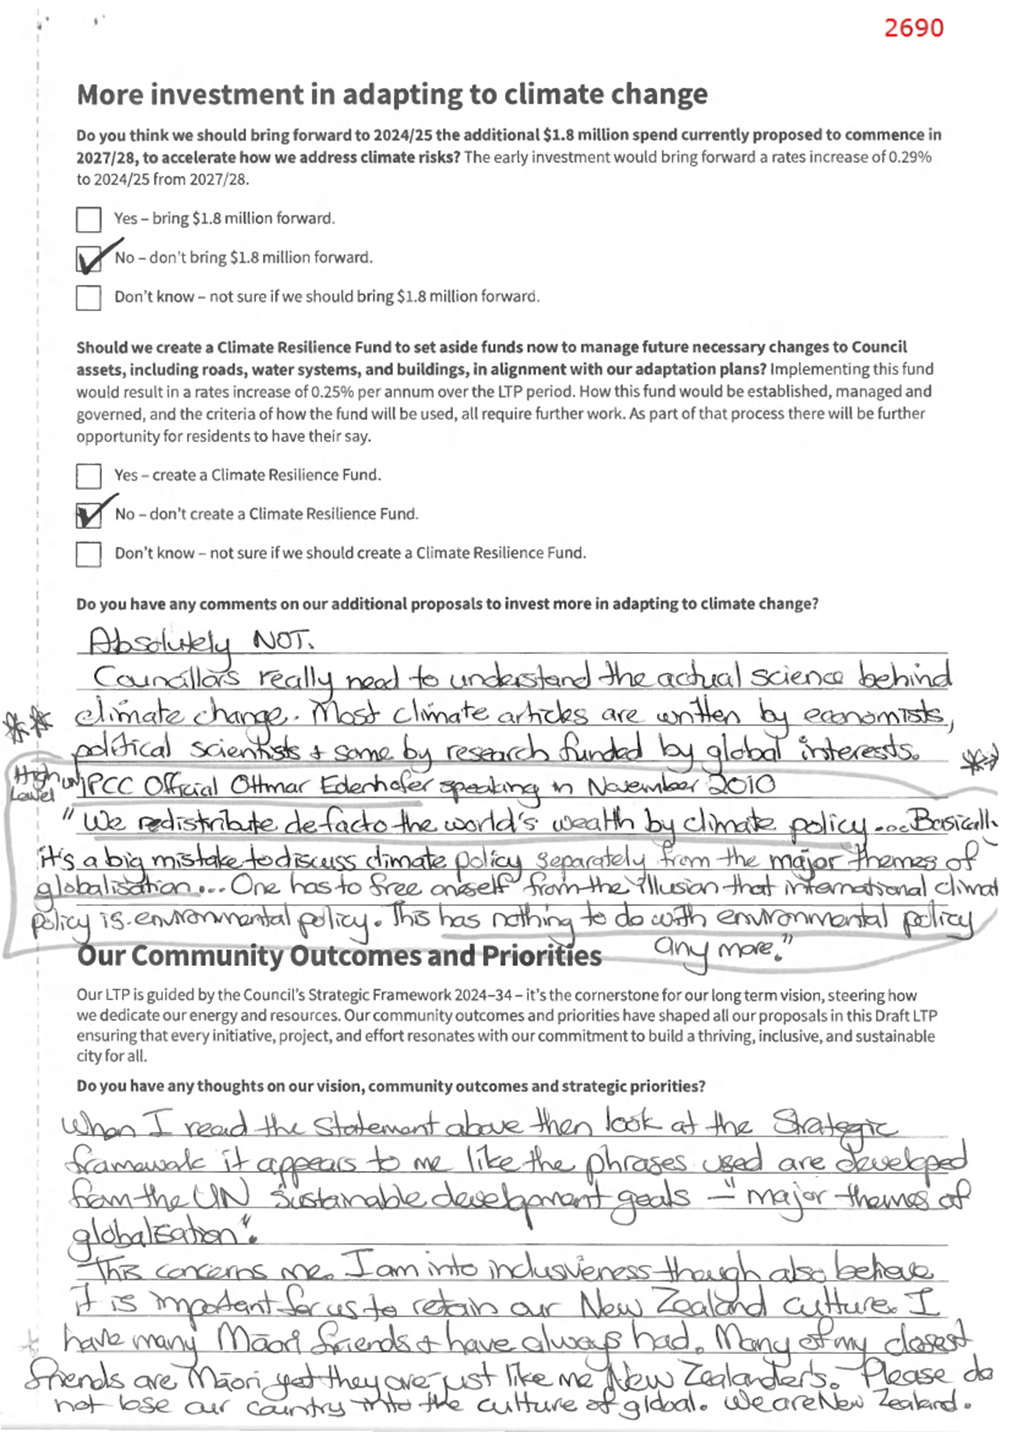 2690
More investment in adapting to climate change
Do you think we should bring forward to 2024/25 the additional $1.8 million spend currently proposed to commence in
2027/28, to accelerate how we address climate risks? The early investment would bring forward a rates increase of 0.29%
to 2024/25 from 2027/28.
Yes – bring $1.8 million forward.
No – don't bring $1.8 million forward.
Don't know – not sure if we should bring $1.8 million forward.
Should we create a Climate Resilience Fund to set aside funds now to manage future necessary changes to Council
assets, including roads, water systems, and buildings, in alignment with our adaptation plans? Implementing this fund
would result in a rates increase of 0.25% per annum over the LTP period. How this fund would be established, managed and
governed, and the criteria of how the fund will be used, all require further work. As part of that process there will be further
opportunity for residents to have their say.
Yes – create a Climate Resilience Fund.
No – don't create a Climate Resilience Fund.
Don't know – not sure if we should create a Climate Resilience Fund.
Do you have any comments on our additional proposals to invest more in adapting to climate change?
Absolutely NOT.
Councillors really need to understand the actual science behind
climate change. Most climate articles are written by economists,
political scientists + some by research funded by global interests.
High Level UN IPCC Official Ottmar Edenhofer speaking in November 2010
"We redistribute defacto the world's wealth by climate policy .... Basicall
it's a big mistake to discuss climate policy separately from the major themes of
globalisation ... One has to free oneself from the illusion that international climat
policy is environmental policy. This has nothing to do with environmental policy
any more."
Our Community Outcomes and Priorities
Our LTP is guided by the Council's Strategic Framework 2024–34 – it's the cornerstone for our long term vision, steering how
we dedicate our energy and resources. Our community outcomes and priorities have shaped all our proposals in this Draft LTP
ensuring that every initiative, project, and effort resonates with our commitment to build a thriving, inclusive, and sustainable
city for all.
Do you have any thoughts on our vision, community outcomes and strategic priorities?
When I read the statement above then look at the Strategic
framework it appears to me like the phrases used are developed
from the UN sustainable development goals – "major themes of
globalisation".
This concerns me. I am into inclusiveness though also believe
it is important for us to retain our New Zealand culture. I
have many Māori friends + have always had. Many of my closest
friends are Māori yet they are just like me New Zealanders. Please do
not lose our country into the culture of global. We are New Zealand.